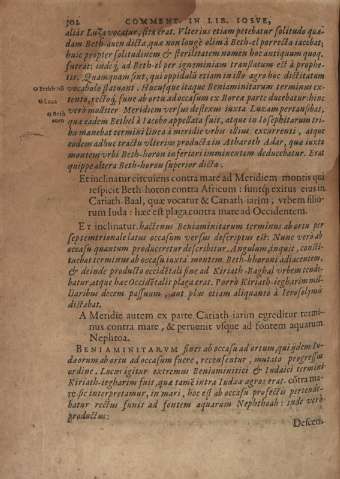 302 COMMENT. IN LIB. IOSVE,
aliàs Luza vocatur, sita erat. Vlterius etiam petebatur solitudo quædam
Beth-auen dicta, quæ non longè olim à Beth-el porrecta iacebat;
huic propter solitudinem & sterilitatem nomen hoc antiquum quoque
fuerat: inde & ad Beth-el per ignominiam translatum est à prophetis.
Quamquam sunt, qui oppidulū etiam in isto agro hoc dictitatum
vocabulo statuunt. Hucusque itaque Beniaminitarum terminus extento,
rectoque fune ab ortu ad occasum ex Borea parte ducebatur: hinc
verò maiuster Meridiem versus deflexus iuxta Luzam pertransibat,
quæ eadem Bethel à Iacobo appellata fuit, atque in Iosephitarum tribu
manebat termini linea à meridie vrbis illius excurrenti, atque
eodem adhuc tractu vlterius producta in Atharoth Adar, quæ iuxta
montem vrbi Beth-horon inferiori imminentem deducebatur. Erat
quippe altera Beth-horon superior dicta.
Beth-el
Luza
Beth
Et inclinatur circuiens contra mare ad Meridiem montis qui
respicit Beth-horon contra Africum : suntq; exitus eius in
Cariath-Baal, quæ vocatur & Cariath-iarim, vrbem filiorum
Iuda : hæc est plaga contra mare ad Occidentem.
Et inclinatur. hactenus Beniaminitarum terminus ab ortu per
septemtrionale latus occasum versus descriptus est: Nunc verò ab
occasu quantum produceretur describitur. Angulum, inquit, constituebat
terminus ab occasu iuxta montem Beth-choroni adiacentem,
& deinde producto occidētali fine ad Kiriath-Baghal vrbem tendebatur,
atque hæc Occidētalis plaga erat. Porrò Kiriath-iegharim milliaribus
decem passuum aut plus etiam aliquanto à Ierosolymis
distabat.
A Meridie autem ex parte Cariath iarim egreditur terminus
contra mare, & peruenit vsque ad fontem aquarum
Nephtoa.
BENIAMINITARVM fines ab occasu ad ortum, qui ijdem Iudæorum
ab ortu ad occasum fuere, recensentur, mutato progressus
ordine. Locus igitur extremus Beniaminitici & Iudaici termini
Kiriath-iegharim fuit, quæ tamē intra Iudææ agros erat. cōtra mare
sic interpretamur, in mari, hoc est ab occasu profectis pertendebatur
rectus funis ad fontem aquarum Nephthoah: inde verò
productus:
Descen-